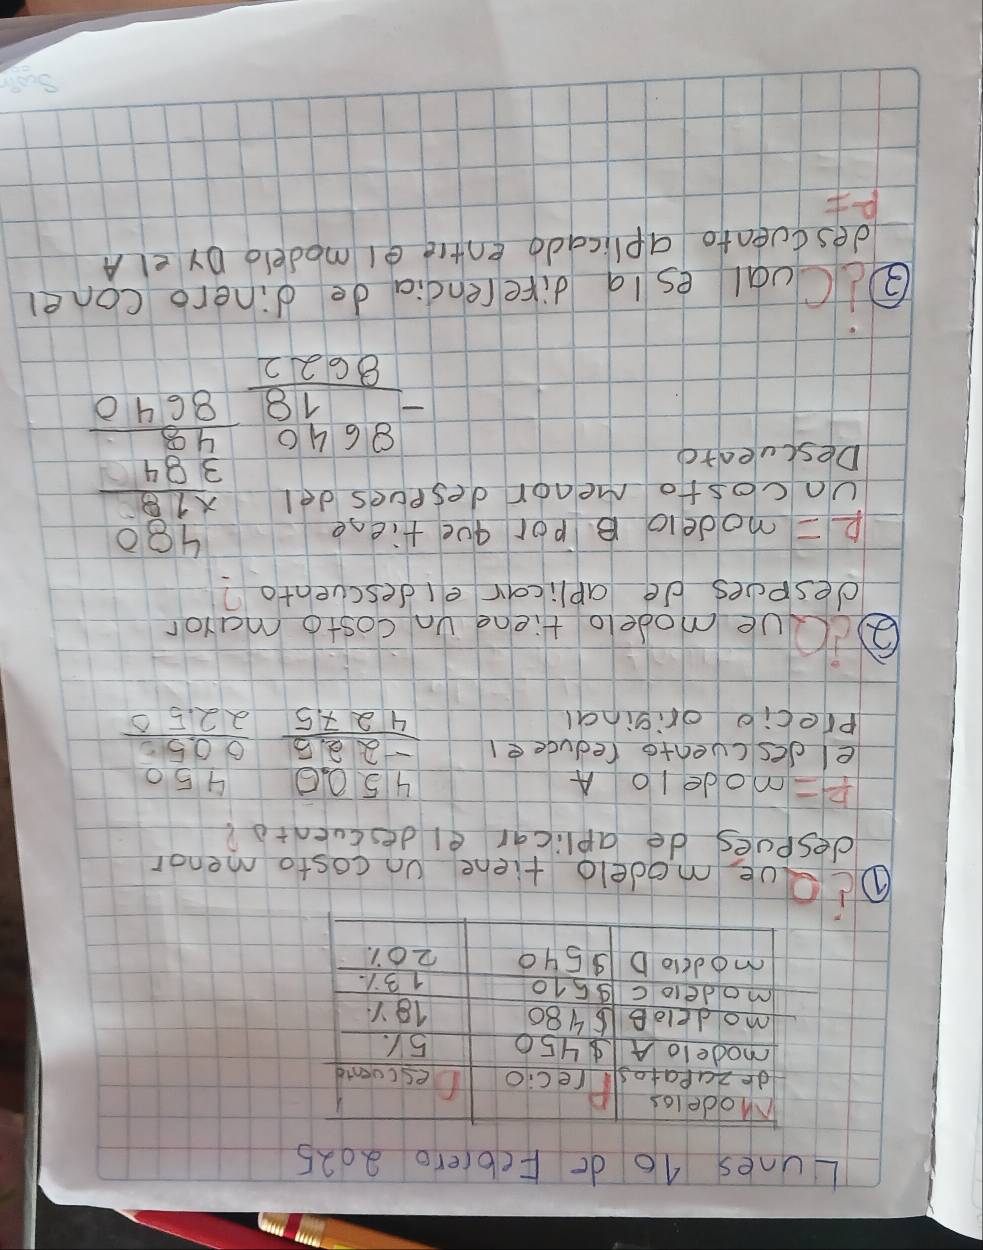 Lunes 16 de Febrero 2025
Modelos de zapatos Precio Descuento
modelo A $450 5%
modelo B $480 18%
modelo C $510 13%
modelo D $540 20%
① ¿Que modelo tiene un costo menor
después de aplicar el descuento?
R= modelo A
el descuento reduce el
Precio original
4500
-225
4275
450
005
2250
② ¿Que modelo tiene un costo mayor
despues de aplicar el descuento?
R= modelo B Por que tiene
un costo menor despues del
Descuento
480
x18
384
48
8640
8640
- 18
8622
③ ¿Cual es la diferencia de dinero con el
descuento aplicado entre el modelo D y el A
R=